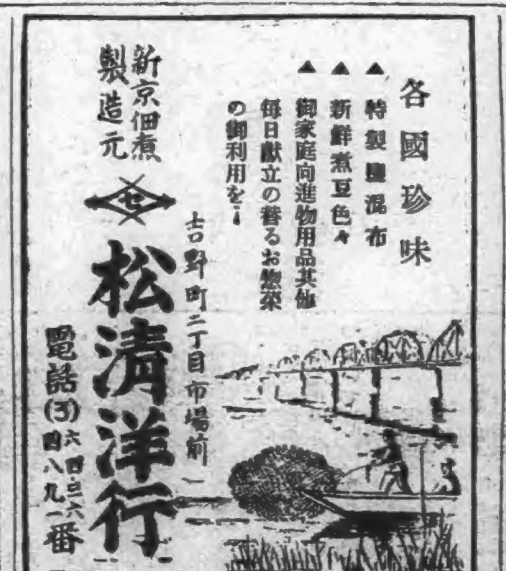 各國珍味
▲特製鹽昆布
▲新鮮煮豆色々
▲御家庭向進物用品其他
毎日獻立の替るお惣菜
の御利用を！
吉野町二丁目市場前
新京佃煮
製造元
セ
松淸洋行
電話(3)六四三六
四八九一番